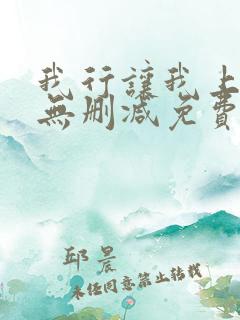 我行讓我上
無刪減免費
邱晨
未经同意禁止转载